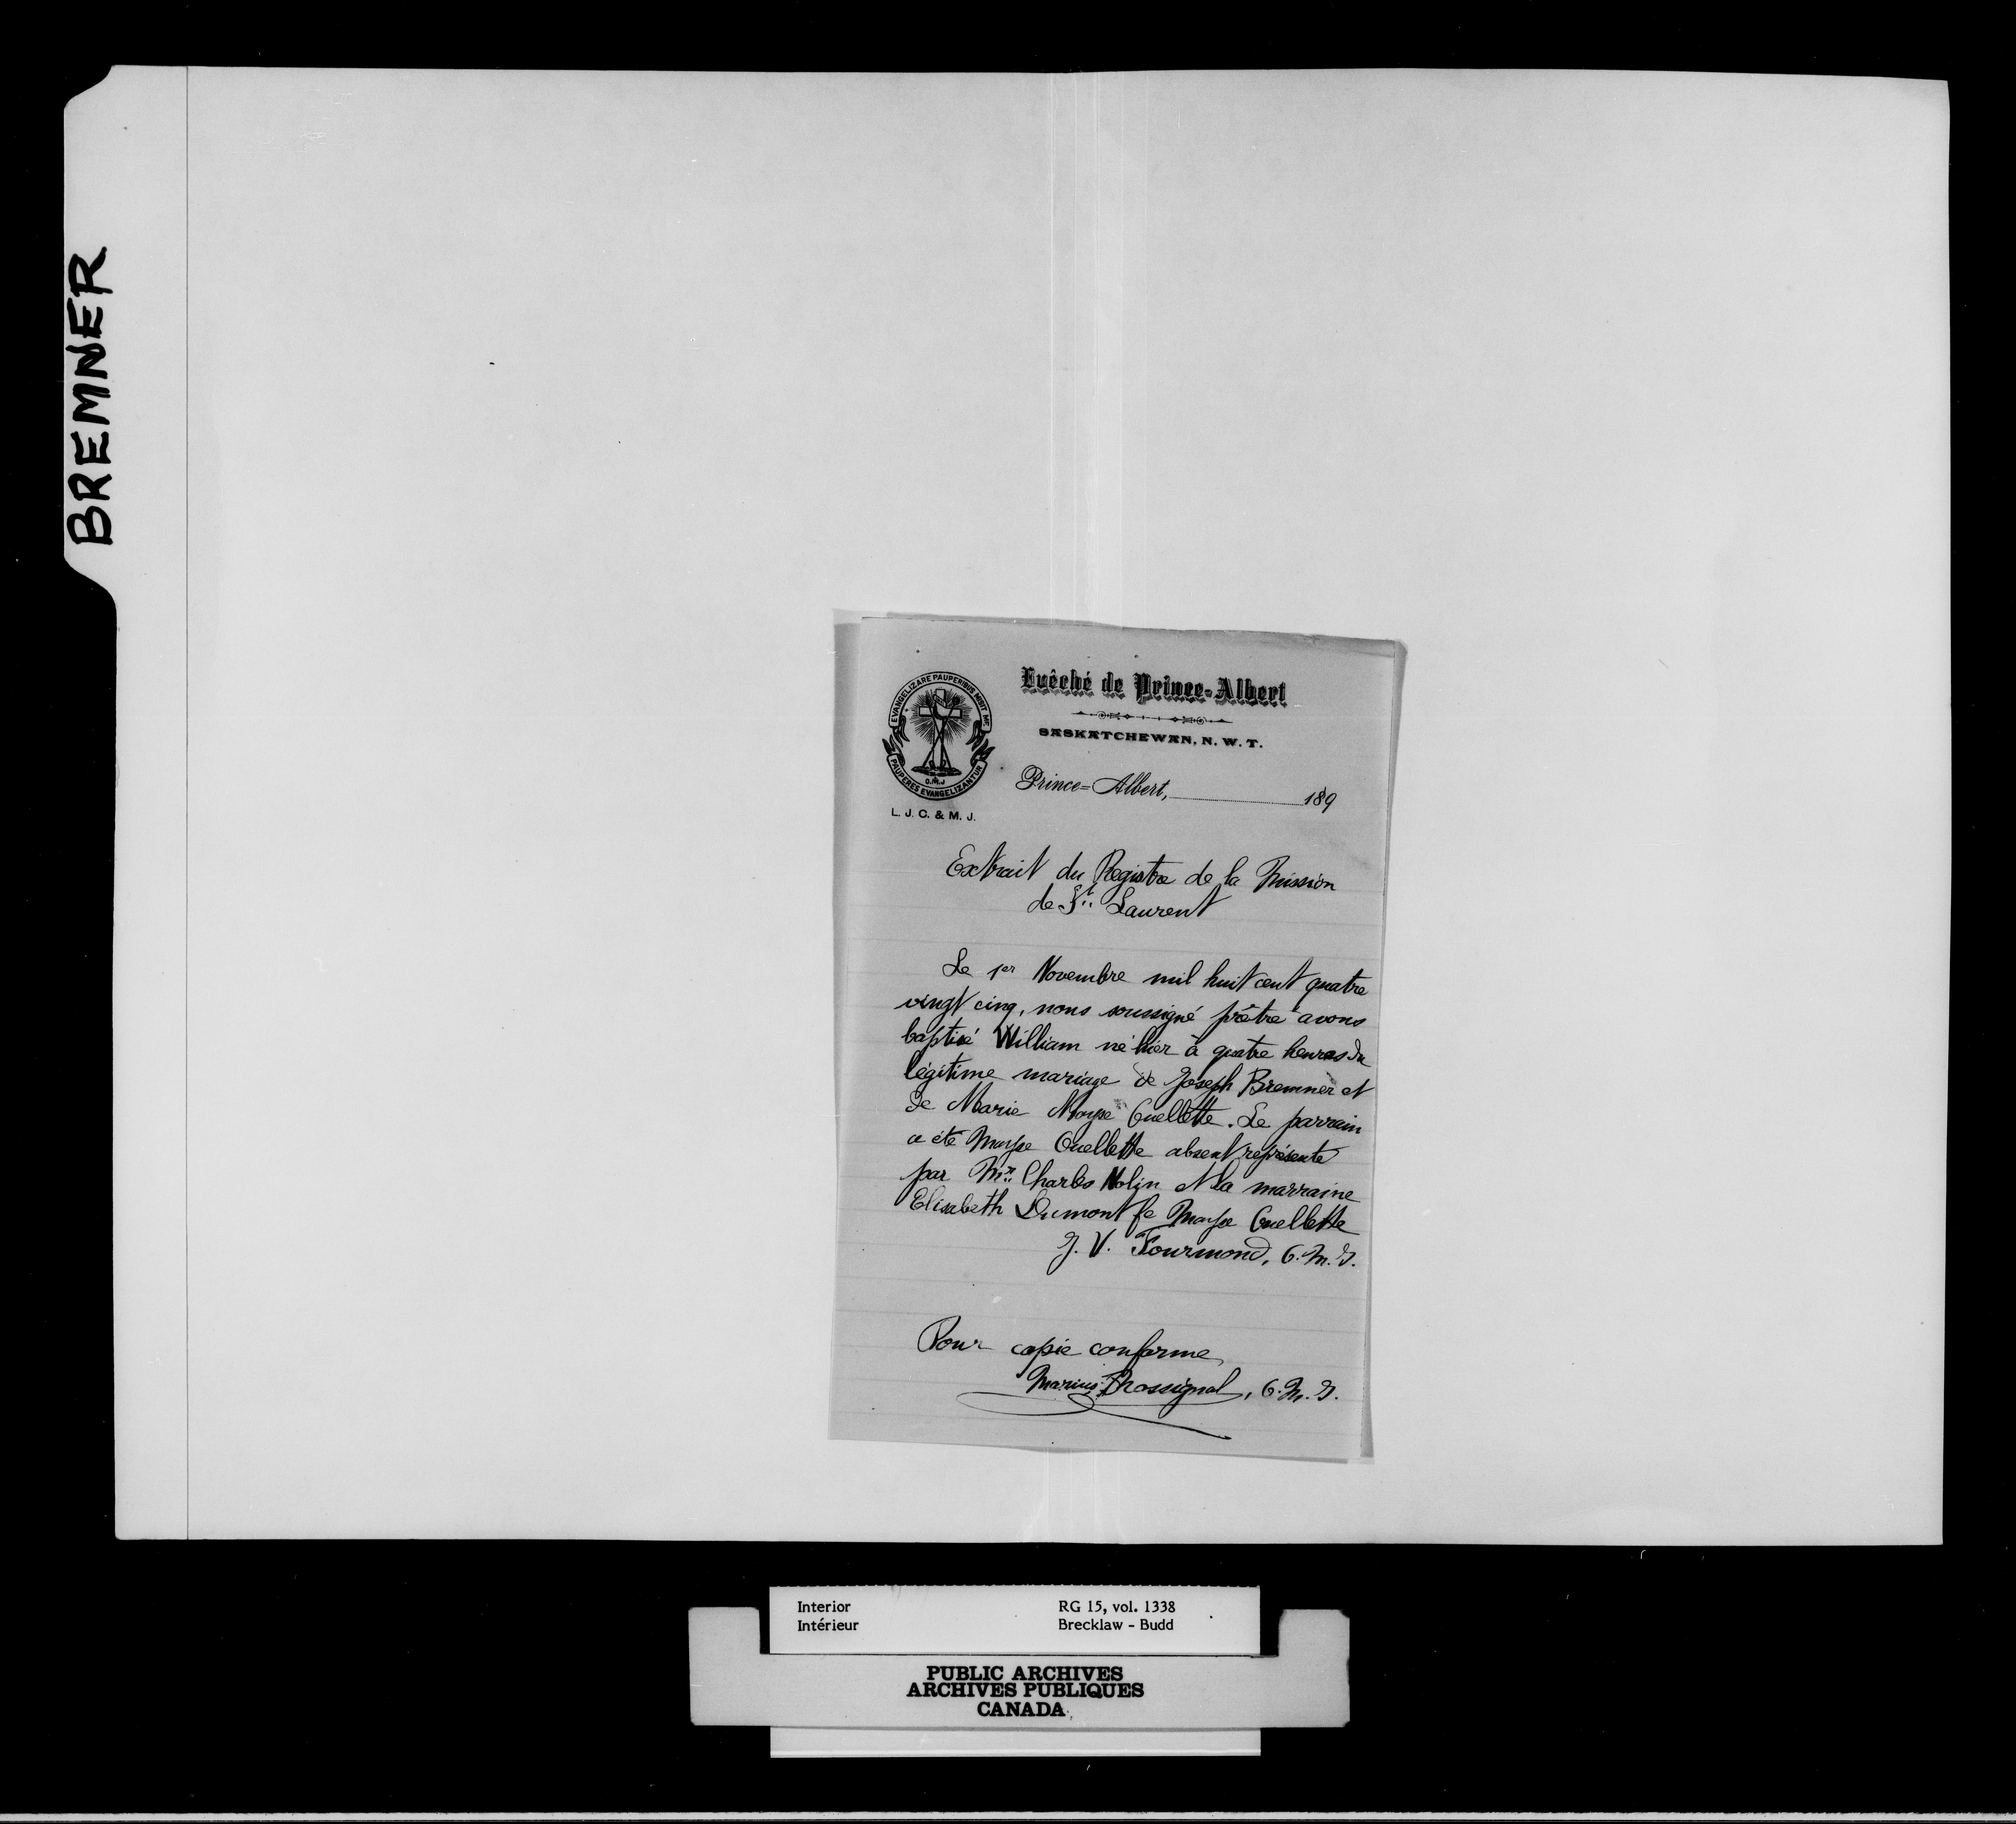 BREMNER
EVANGELIZARE PAUPERIBUS MISIT ME
PAUPERES EVANGELIZANTUR
O.M.J
L. J. C. & M. J.
Evêché de Prince-Albert
SASKATCHEWAN, N. W. T.
Prince=Albert, 189
Extrait du Registre de la Mission
de St. Laurent
Le 1er Novembre mil huit cent quatre
vingt cinq, nous soussigné prêtre avons
baptisé William né hier à quatre heures du
légitime mariage de Joseph Bremner et
de Marie Moyse Ouellette. Le parrain
a été Moyse Ouellette absent représenté
par Mr. Charles Nolin et la marraine
Elisabeth Dumont fe Moyse Ouellette
J. V. Fourmond, O.M.J.
Pour copie conforme
Marius Rossignol, O.M.J.
Interior RG 15, vol. 1338
Intérieur Brecklaw - Budd
PUBLIC ARCHIVES
ARCHIVES PUBLIQUES
CANADA